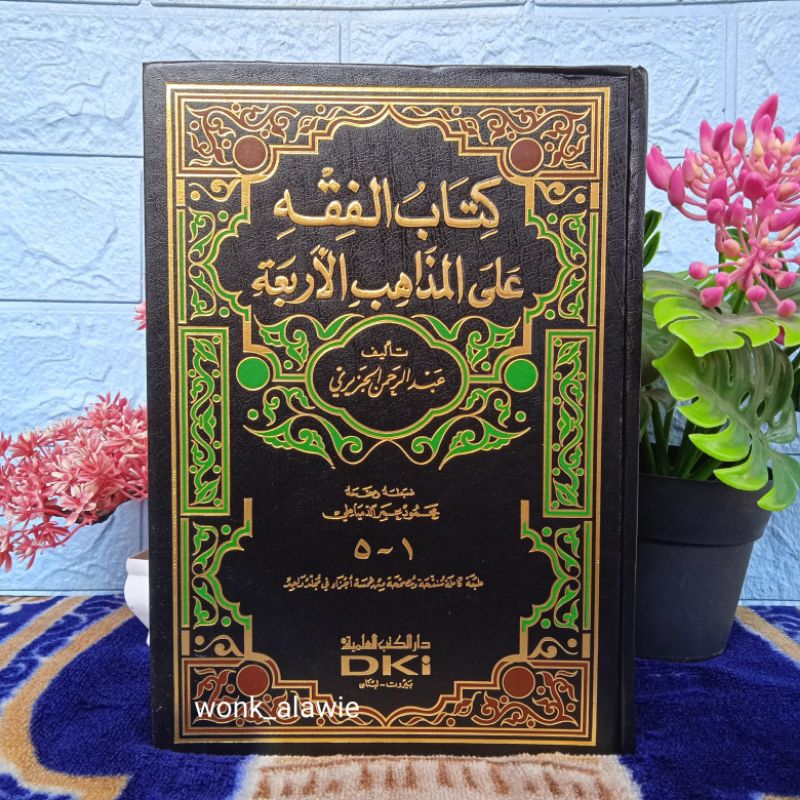 كِتَابُ الفِقْهِ
عَلَى المَذَاهِبِ الأَرْبَعَةِ
تأليف
عبد الرحمن الجزيري
محمود الدمياطي
١ - ٥
طبعة كاملة منقحة ومصححة خمسة أجزاء في مجلد واحد
دار الكتب العلمية
DKi
بيروت - لبنان
wonk_alawie